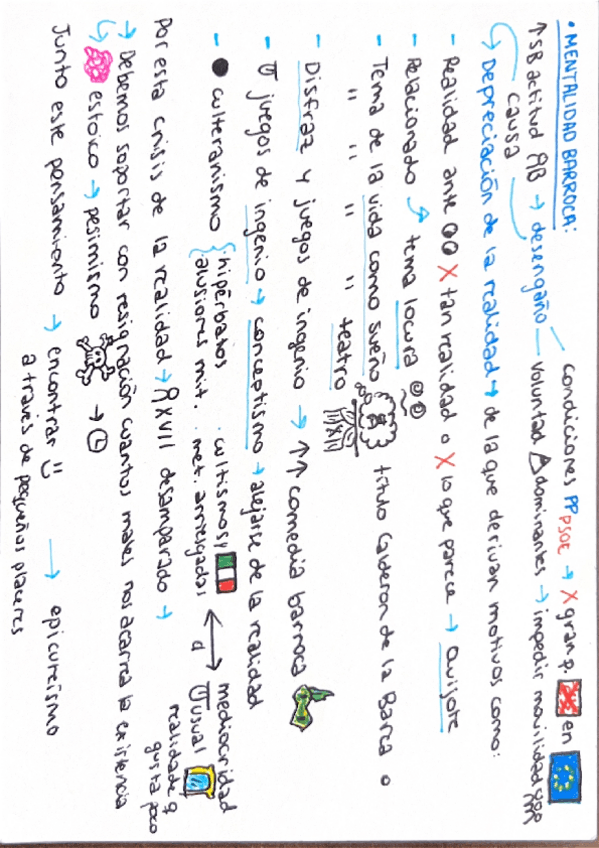 • MENTALIDAD BARROCA:
condiciones PP PSOE → X gran p. en
↑SB actitud B → desengaño — voluntad dominantes → impedir movilidad
causa
↳ Depreciación de la realidad → de la que derivan motivos como:
- Realidad ante X tan realidad o X lo que parece → Quijote
- Relacionado tema locura
- Tema de la vida como sueño título Calderon de la Barca o
" " " " teatro
- Disfraz y juegos de ingenio → ↑↑ comedia barroca
- juegos de ingenio → conceptismo → alejarse de la realidad
- ● culteranismo { hipérbatos · cultismos
· alusiones mit. · met. arriesgadas ↔ mediocridad
d usual
realidad q
gusta poco
Por esta crisis de la realidad → XVII desamparado →
→ Debemos soportar con resignación cuantos males nos acarra la existencia
↳ estoico → pesimismo →
Junto este pensamiento → encontrar → epicureísmo
a través de pequeños placeres